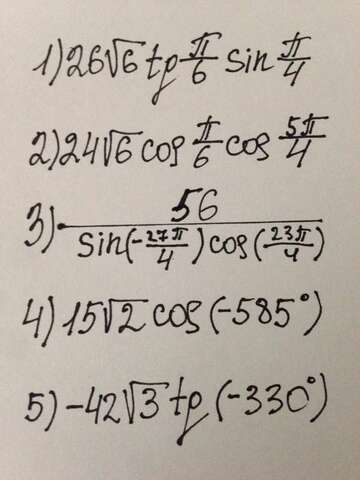 1) 26√6 tg π/6 sin π/4
2) 24√6 cos π/6 cos 5π/4
3) 56 / sin(-27π/4) cos(-23π/4)
4) 15√2 cos(-585°)
5) -42√3 tg(-330°)